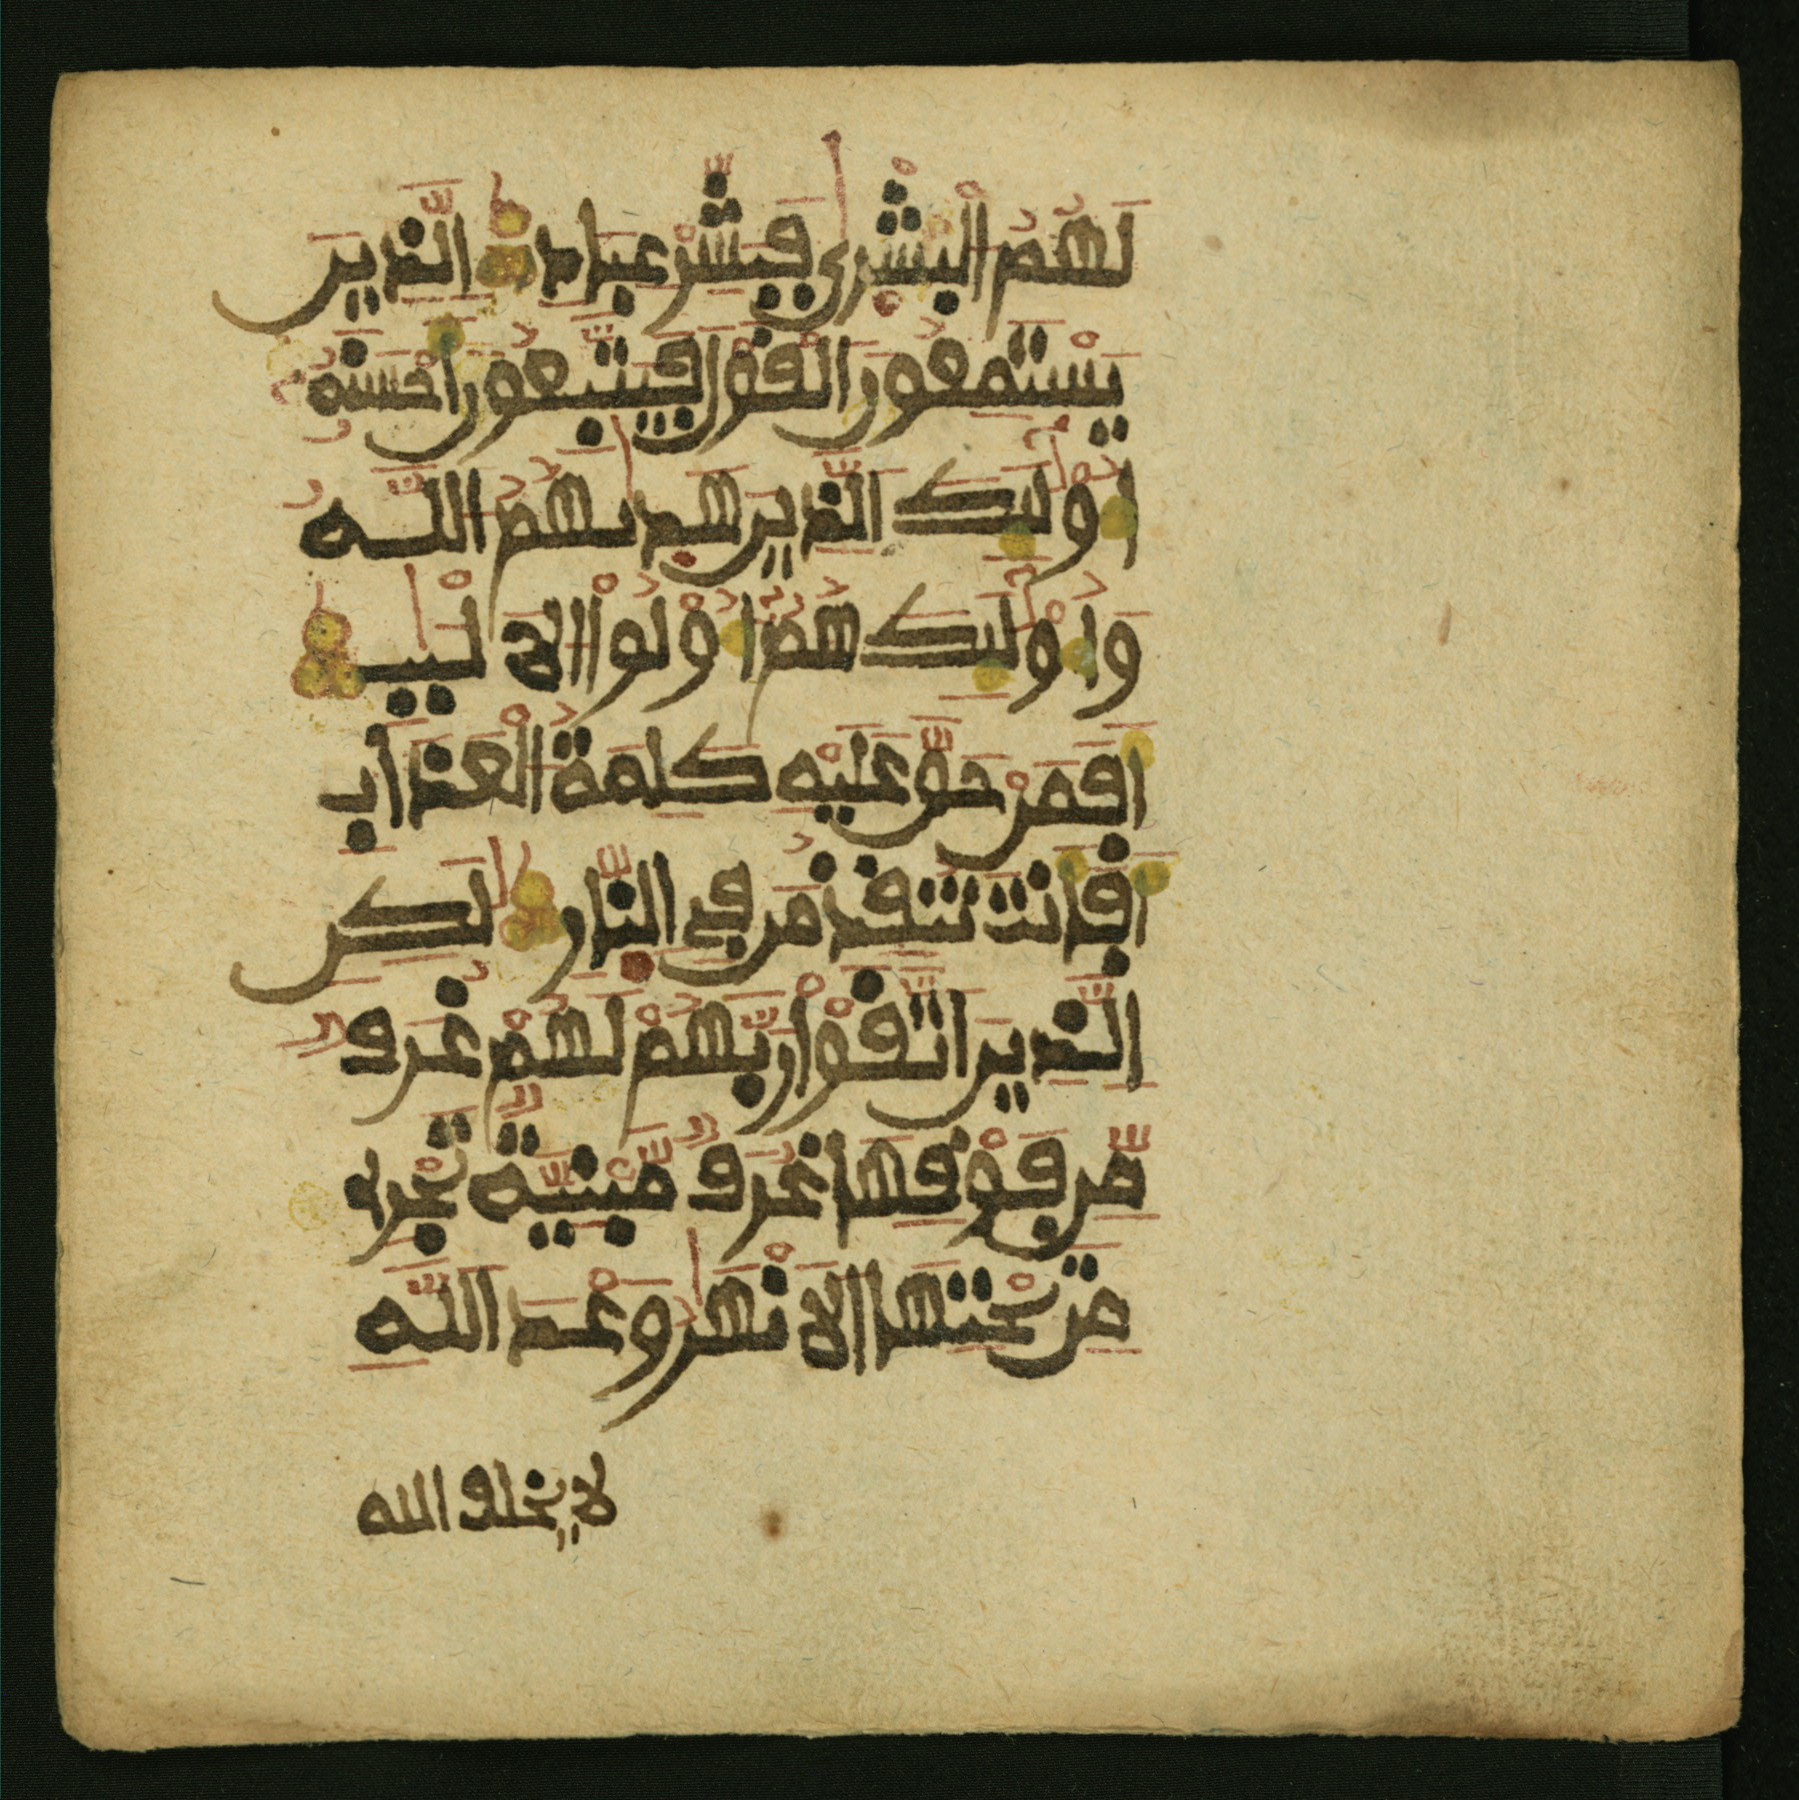 لَهُمُ الْبُشْرٰى فَبَشِّرْ عِبَادِ الَّذِينَ
يَسْتَمِعُونَ الْقَوْلَ فَيَتَّبِعُونَ أَحْسَنَهُ
أُولَٰئِكَ الَّذِينَ هَدٰىهُمُ اللَّهُ
وَأُوْلَٰئِكَ هُمُ أُوْلُواْ الَالْبَٰبِ
أَفَمَنْ حَقَّ عَلَيْهِ كَلِمَةُ الْعَذَابِ
أَفَأَنتَ تُنقِذُ مَن فِي النَّارِ لَٰكِنِ
الَّذِينَ اتَّقَوْاْ رَبَّهُمْ لَهُمْ غُرَفٌ
مِّن فَوْقِهَا غُرَفٌ مَّبْنِيَّةٌ تَجْرِى
مِن تَحْتِهَا الَانْهَٰرُ وَعْدَ اللَّهِ
لا يخلف الله